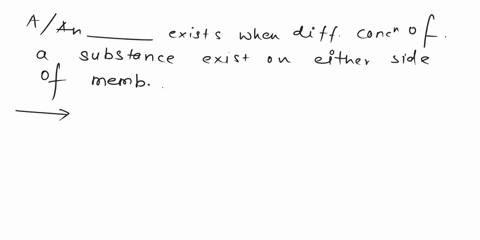 A/An ______ exists when diff. concn of.
a substance exist on either side
of memb.